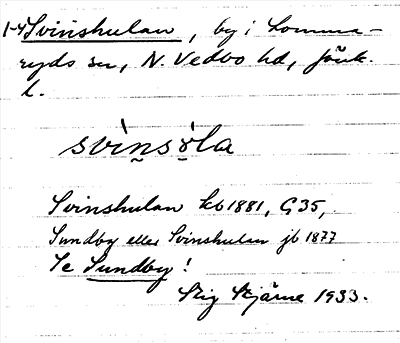 1-4 Svinshulan, by i Lomma-
ryds sn, N. Vedbo hd, Jönk.
l.
svìnsò̤la
Svinshulan kb 1881, G35,
Sundby eller Svinshulan jb 1877
Se Sundby!
Stig Stjärne 1933.